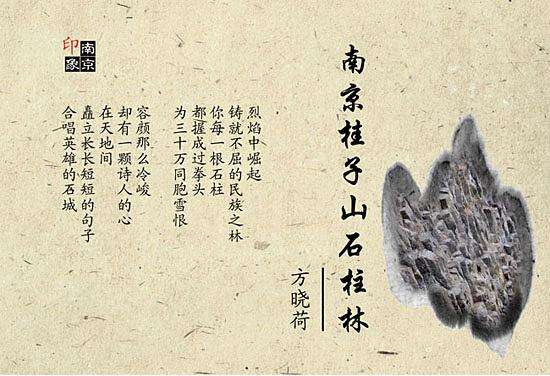 南京桂子山石柱林
方晓荷
烈焰中崛起
铸就不屈的民族之林
你每一根石柱
都握成过拳头
为三十万同胞雪恨
容颜那么冷峻
却有一颗诗人的心
在天地间
矗立长长短短的句子
合唱英雄的石城
南京
印象